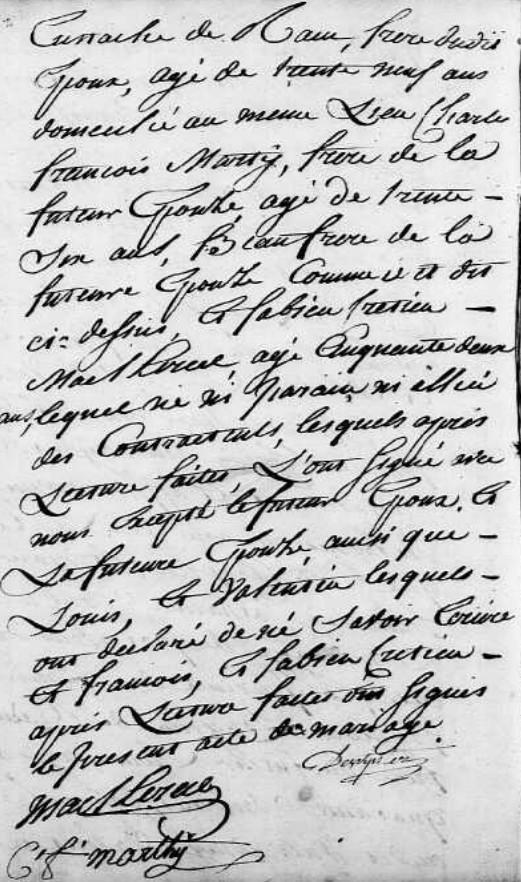 Eustache de Raeu, frere dudit
Epoux, agé de trente neuf ans
domicilié au meme Lieu Charles
francois Marthÿ, frere de la
future Epouse, agé de trente -
Six ans, beaufrere de la
future Epouse Comme il est dit
ci-dessus, et fabien Cretien -
Mael Lercel, agé Cinquante deux
ans, lequel ne ni parain ni allieé
des Contractents, lesquels apres
Lecture faites, L'ont signé avec
nous Excepté le futeur Epoux, et
La future Epouse ainsi que -
Louis, et Valentin lesquels -
ont declaré de né Savoir Ecrire
et francois, et fabien Cretien -
apres Lecture faites ont signés
le present acte de mariage.
C. f. marthÿ